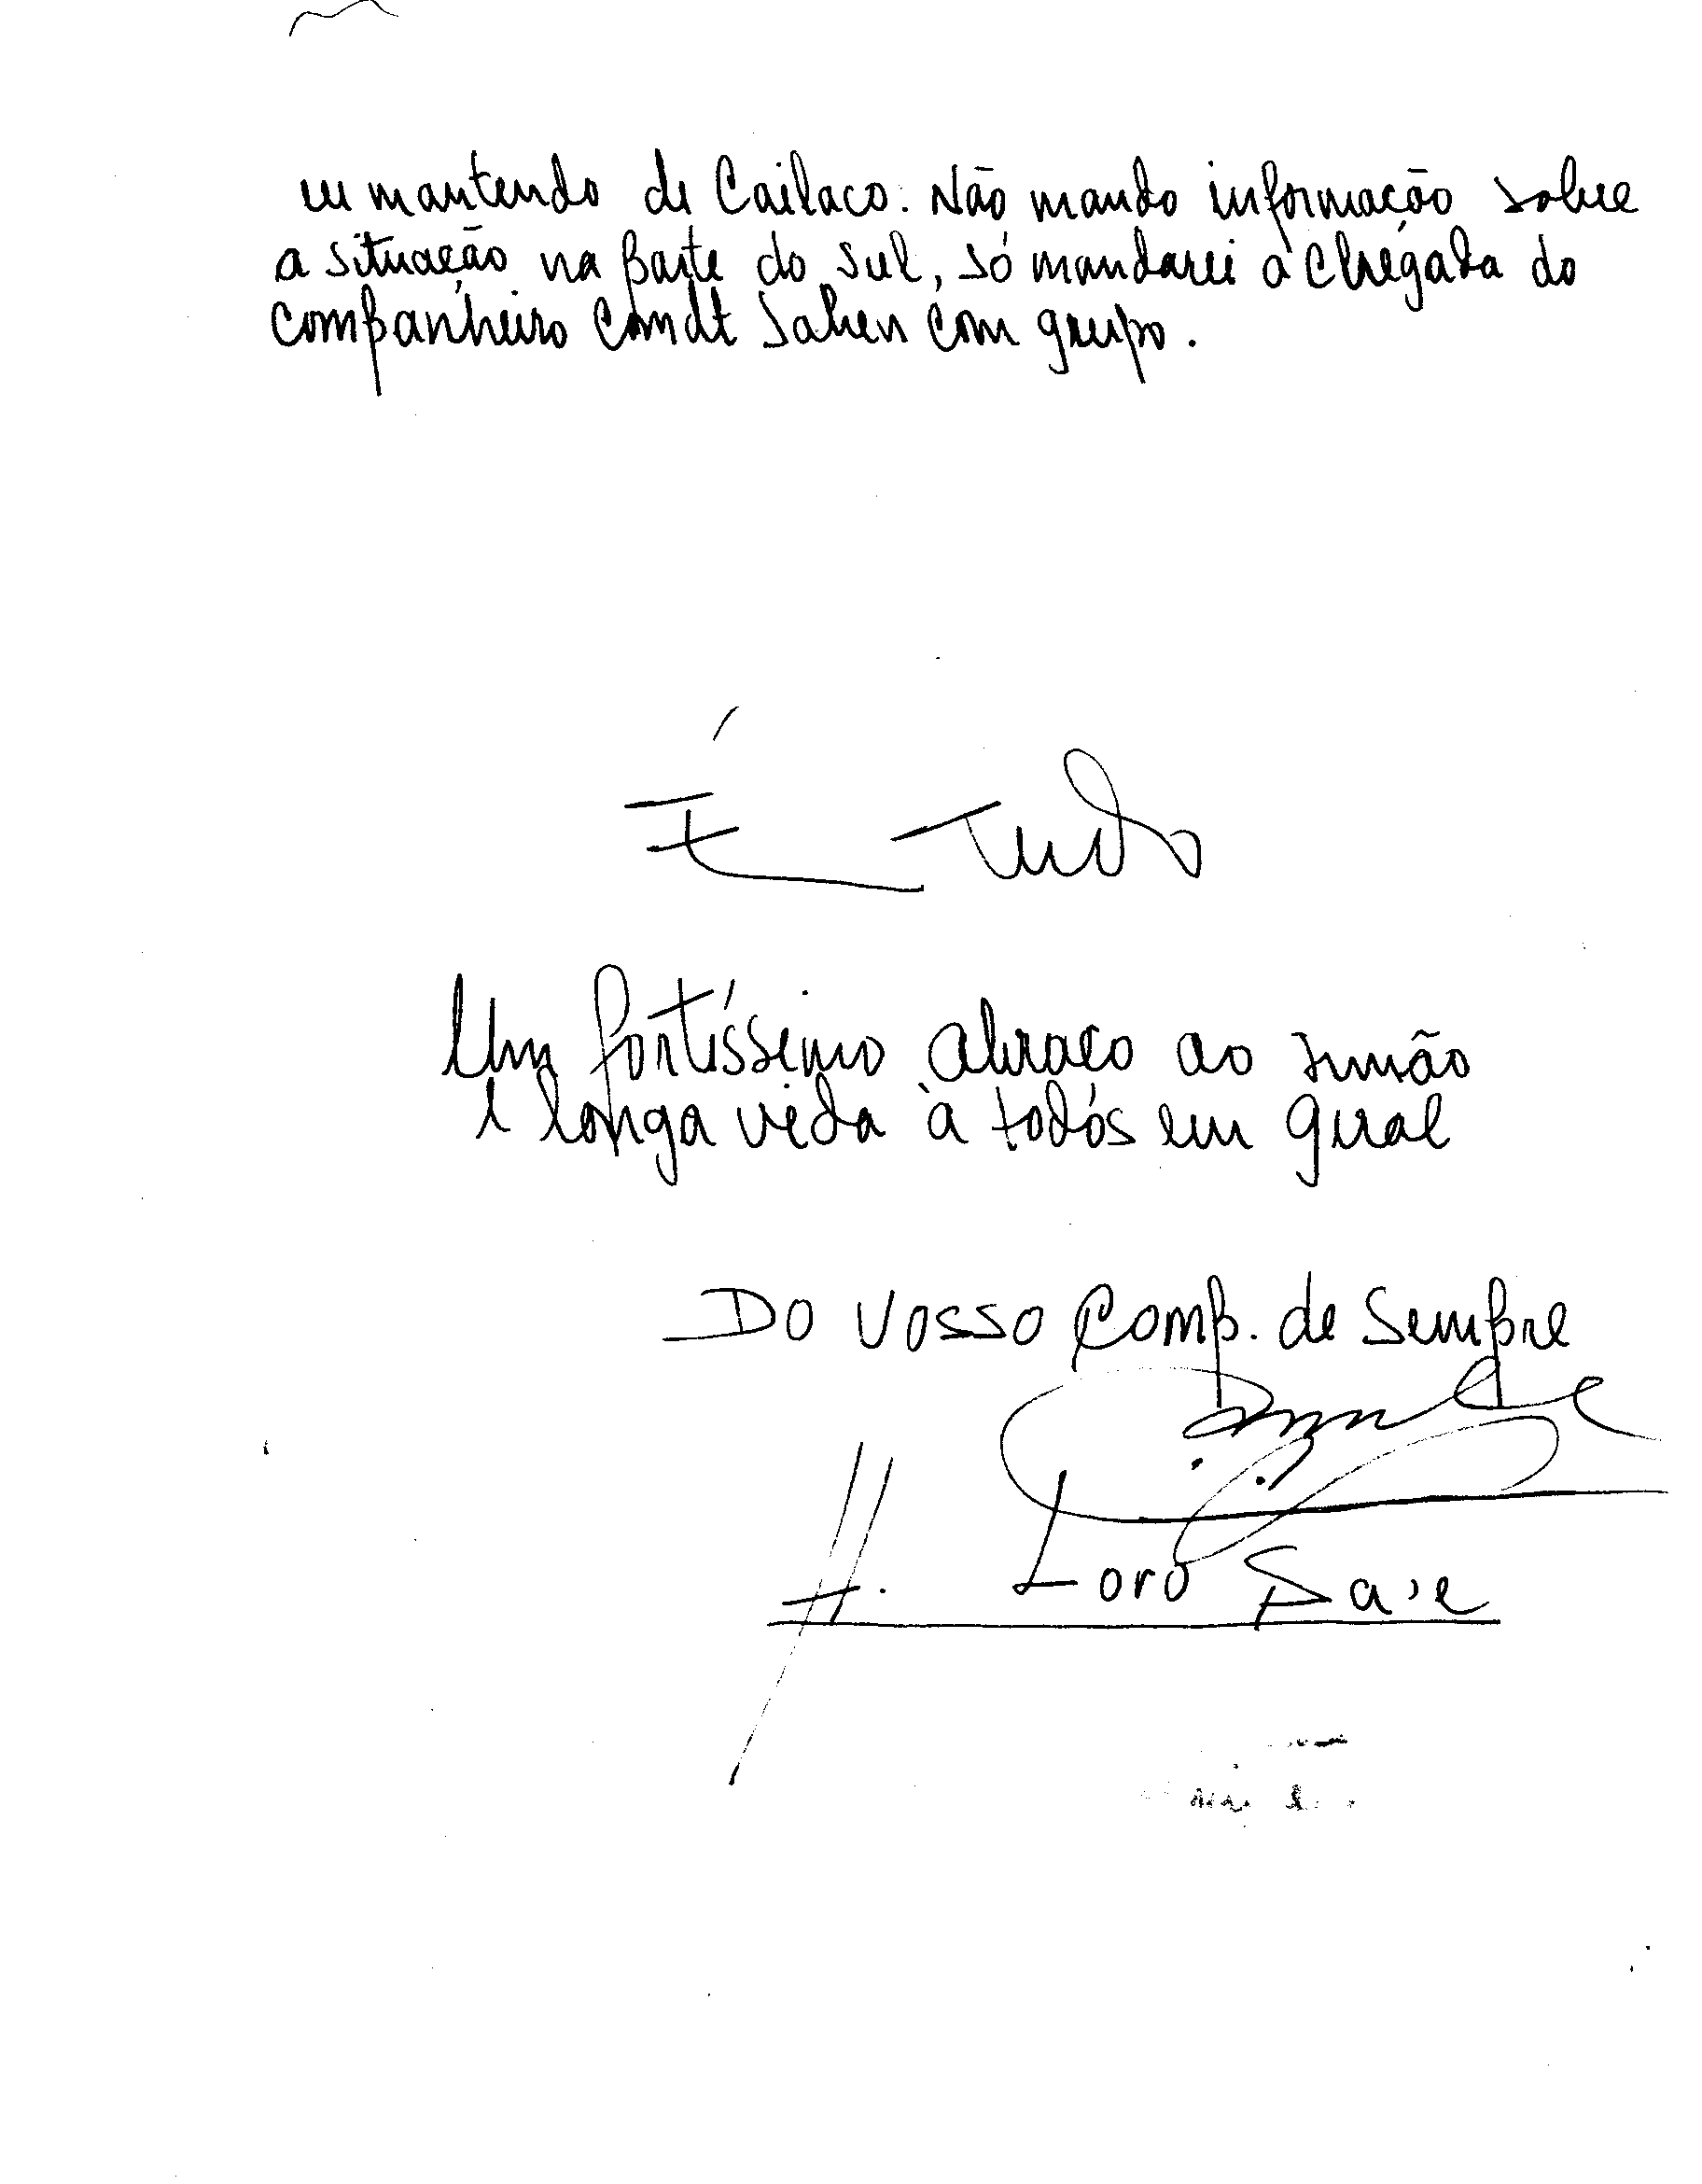 eu mantendo de Cailaco. Não mando informação sobre
a situação na parte do sul, só mandarei à chégada do
companheiro Comdt Saben com grupo.
É Tudo
Um fortíssimo abraço ao irmão
e longa vida à todós em geral
Do vosso Comp. de Sempre
H. Loro Sa'e